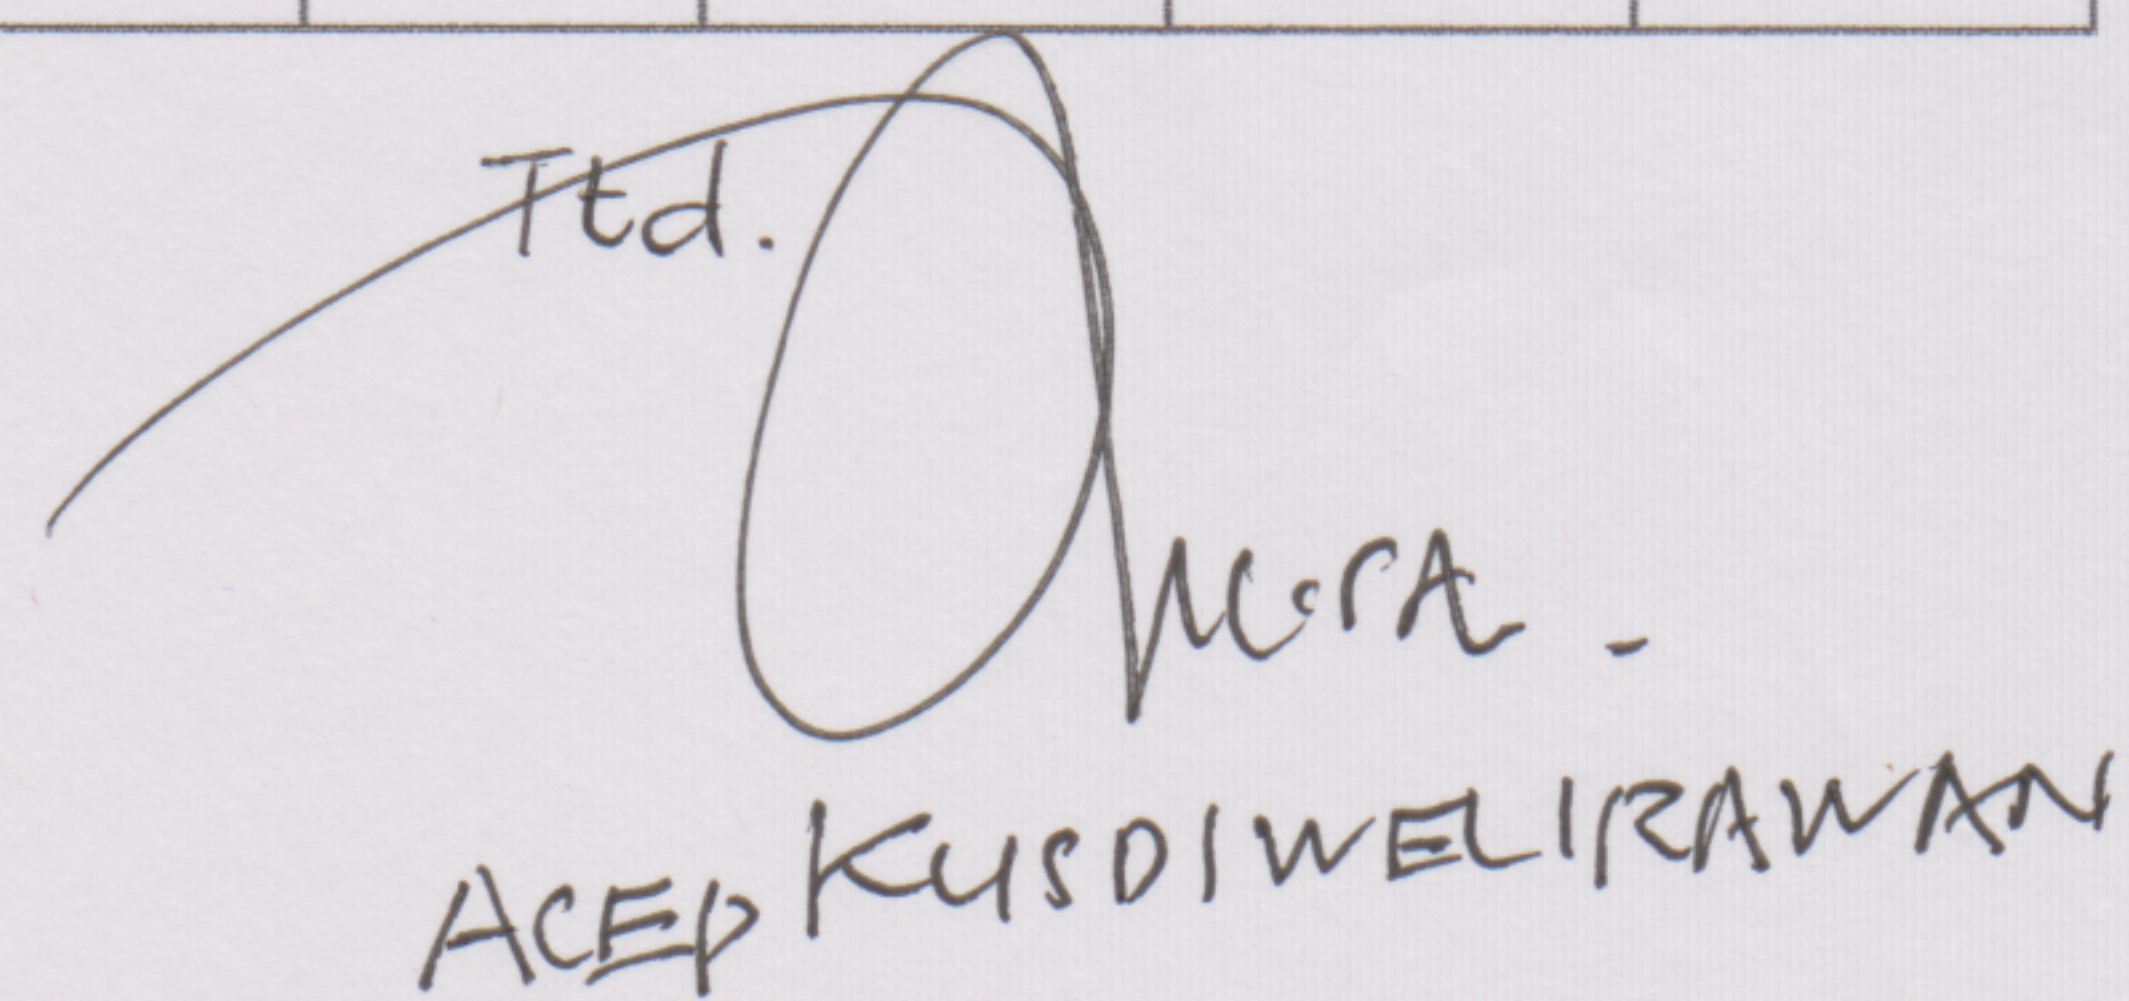 Ttd.
ACEP KUSDIWELIRAWAN